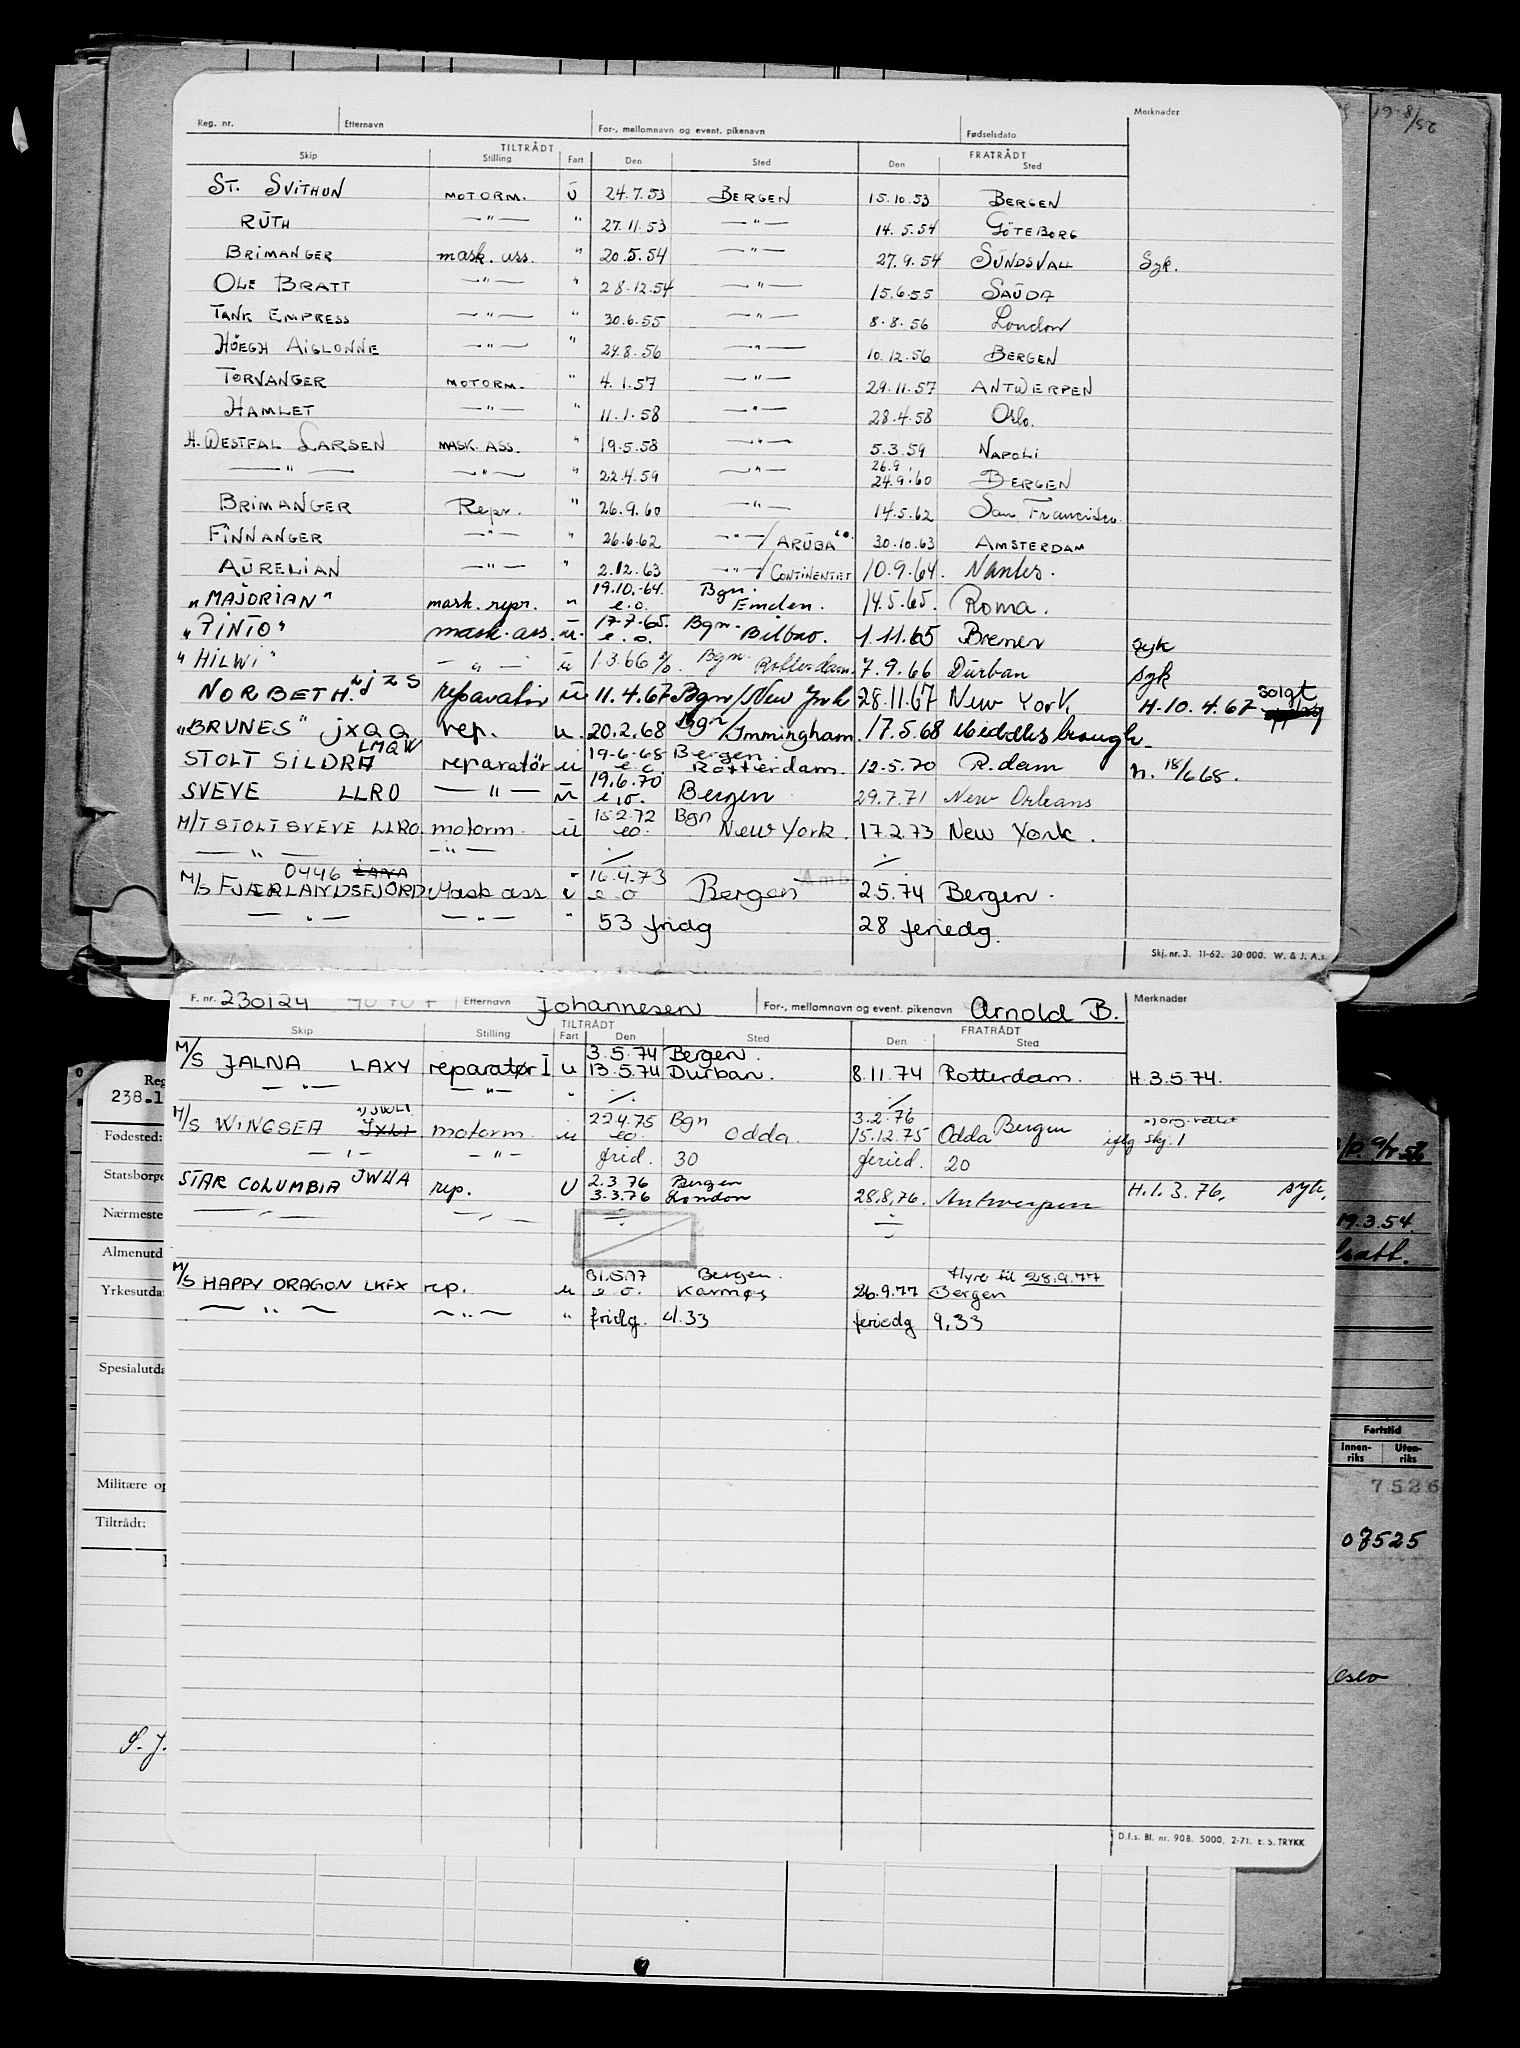 Merknader
Reg. nr. Etternavn For-, mellomnavn og event. pikenavn Fødselsdato
TILTRÅDT FRATRÅDT
Skip Stilling Fart Den Sted Den Sted
ST. SVITHUN MOTORM. U 24.7.53 BERGEN 15.10.53 BERGEN
RUTH —"— " 27.11.53 —"— 14.5.54 GÖTEBORG
BRIMANGER mask. ass. " 20.5.54 —"— 27.9.54 SUNDSVALL Syk.
OLE BRATT —"— " 28.12.54 —"— 15.6.55 SAUDA
TANK EMPRESS —"— " 30.6.55 —"— 8.8.56 London
HÖEGH AIGLONNE —"— " 24.8.56 —"— 10.12.56 BERGEN
TORVANGER MOTORM. " 4.1.57 —"— 29.11.57 ANTWERPEN
HAMLET —"— " 11.1.58 —"— 28.4.58 Oslo.
H. WESTFAL LARSEN MASK. ASS. " 19.5.58 —"— 5.3.59 NAPOLI
26.9
—"— —"— " 22.4.59 —"— 24.9.60 BERGEN
BRIMANGER Repr. " 26.9.60 —"— 14.5.62 San Francisco
FINNANGER —"— " 26.6.62 —"—/ARUBA e.o. 30.10.63 AMSTERDAM
AURELIAN —"— " 2.12.63 —"—/CONTINENTET 10.9.64. Nantes.
19.10.-64. Bgn.
"MAJORIAN" mask. repr. " e.o. Emden. 14.5.65. Roma.
17-7-65. Bgn.
"PINTO" mask. ass. u. e.o. Bilbao. 1.11.65 Bremen syk
"HILWI" —"— u 1.3.66 e/o. Bgn. Rotterdam. 7.9.66 Durban syk
NORBETH. LJZS reparatør u 11.4.67 Bgn/New York 28.11.67 New York, H.10.4.67 solgt
"BRUNES" JXQQ rep. u. 20.2.68 Bgn/Immingham. 17.5.68 Middlesbrough.
LMQW 19-6-68 Bergen
STOLT SILDRA reparatör u e.o. Rotterdam. 12.5.70 R.dam h. 18/6 68.
19.6.70
SVEVE LLRO —"— u e.o. Bergen 29.7.71 New Orleans
15.2.72 Bgn
M/T STOLT SVEVE LLRO. motorm. u eo. New York. 17.2.73 New York.
—"— —"— ./. ./.
0446 LANA 16.4.73
M/S FJÆRLANDSFJORD Mask ass u e o Bergen 2.5.74 Bergen.
—"— —"— " 53 fridg 28 feriedg.
Skj. nr. 3. 11-62. 30 000. W. & J. A.s.
F. nr. 230124 Etternavn Johannesen For-, mellomnavn og event. pikenavn Arnold B. Merknader
TILTRÅDT FRATRÅDT
Skip Stilling Fart Den Sted Den Sted
3.5.74 Bergen.
M/S JALNA LAXY reparatør I u 13.5.74 Durban. 8.11.74 Rotterdam. H.3.5.74.
—"— —"— " ./. ./.
JWLI 22.4.75 Bgn 3.2.76 Bergen
M/S WINGSEA motorm. u eo. Odda. 15.12.75 Odda iflg skj. 1
—"— —"— frid. 30 feried. 20
STAR COLUMBIA JWHA rep. U 2.3.76 Bergen
3.3.76 London 28.8.76. Antwerpen H.1.3.76. syk.
31.5.77 Bergen. Hyre til 28.9.77
M/S HAPPY DRAGON LKFX rep. u e.o. Karmøy 26.9.77 Bergen
—"— —"— " fridg. 4.33 feriedg 9,33
D.f.s. Bl. nr. 90B. 5000, 2-71. E. S. TRYKK
Reg
238.1
Fødested:
Statsborge
Nærmeste
Almenutd
Yrkesutda
Spesialutda
Militære op
Tiltrådt:
S. J.
19.3.54
Fartstid
Innen-riks Uten-riks
7526
07525
Oslo